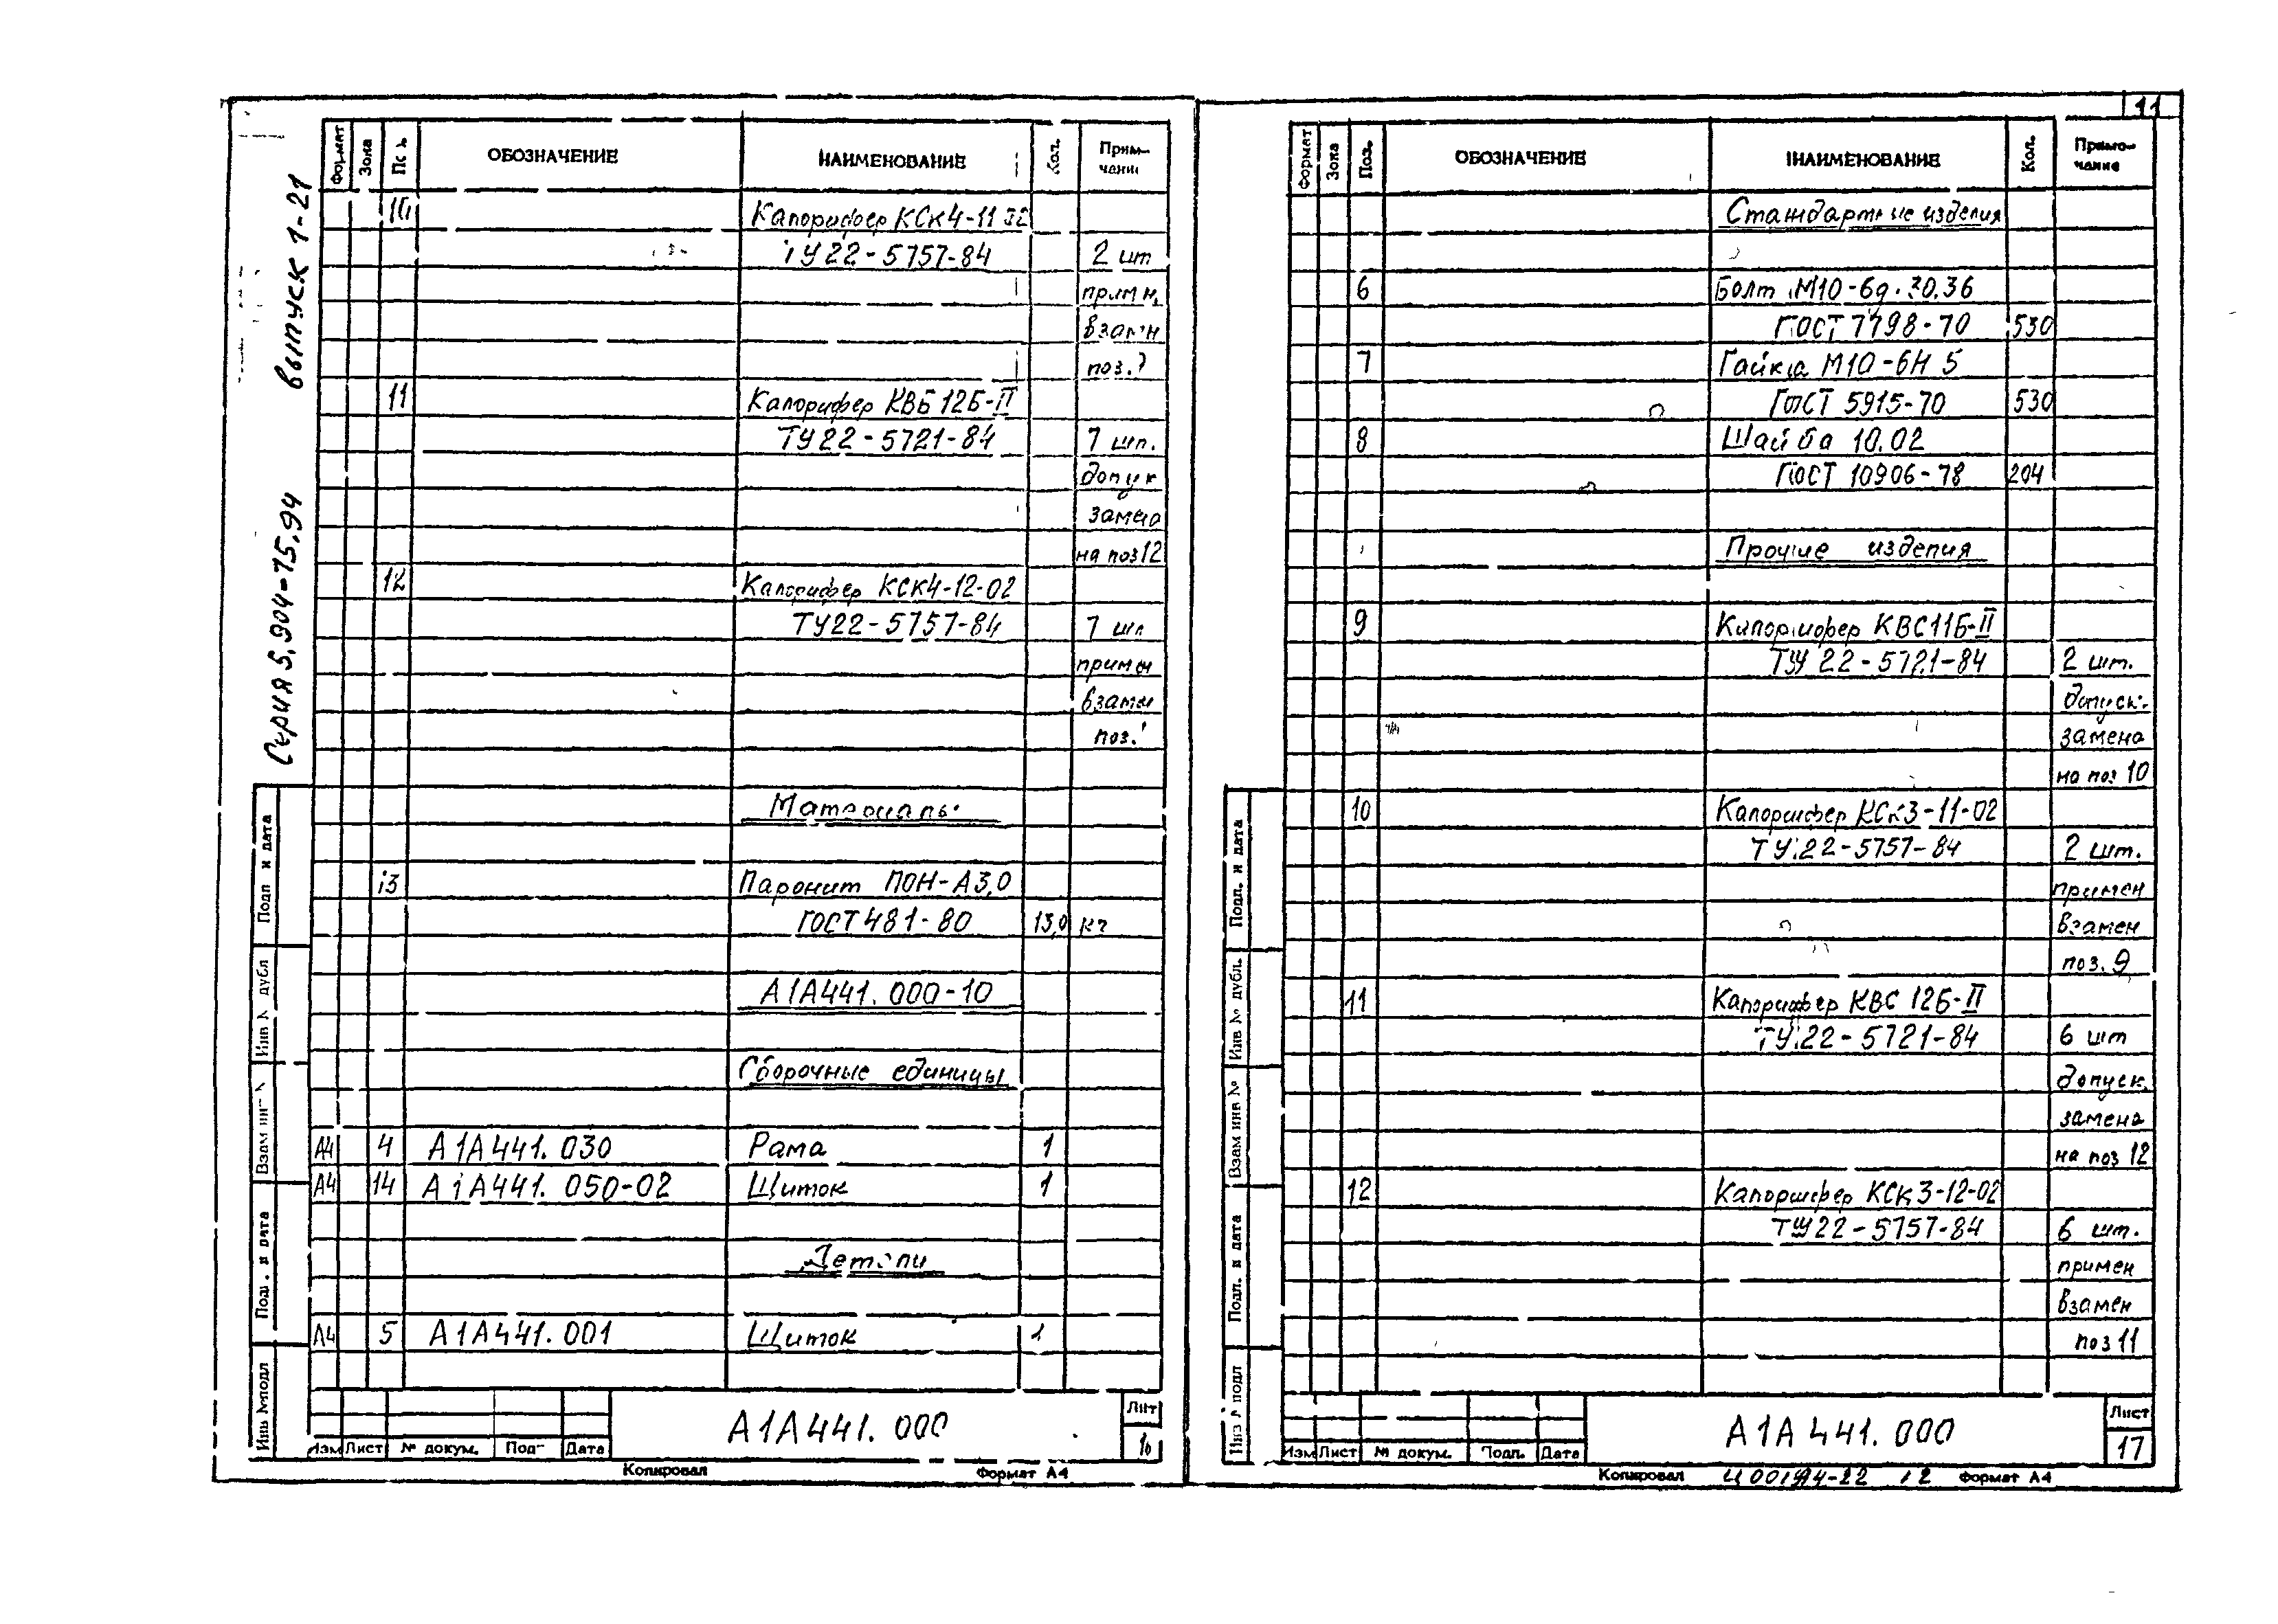 11
Серия 5.904-75.94 выпуск 1-21
Формат Зона ОБОЗНАЧЕНИЕ НАИМЕНОВАНИЕ Кол.
10 Калорифер КСк4-11
ТУ22-5757-84 2 шт
взамен
поз.
11 Калорифер КВБ 12Б-II
ТУ22-5721-84 7 шт.
допуск
замена
на поз 12
12 Калорифер КСК4-12-02
ТУ22-5757-84 7 шт
примен
взамен
поз.
Материалы
13 Паронит ПОН-А3,0
ГОСТ 481-80 13,0 кг
А1А441.000-10
Сборочные единицы
А4 4 А1А441.030 Рама 1
А4 14 А1А441.050-02 Щиток 1
Детали
А4 5 А1А441.001 Щиток 1
Подп и дата
Инв № дубл
Взам инв №
Подп. и дата
Инв № подл
Изм Лист № докум. Подп Дата
А1А441.000
Лист
Копировал Формат А4
Формат Зона Поз. ОБОЗНАЧЕНИЕ НАИМЕНОВАНИЕ Кол. Примечание
Стандартные изделия
6 Болт М10-6g.30.36
ГОСТ 7798-70 530
7 Гайка М10-6Н 5
ГОСТ 5915-70 530
8 Шайба 10.02
ГОСТ 10906-78 204
Прочие изделия
9 Калорифер КВС11Б-II
ТУ 22-5721-84 2 шт.
допуск.
замена
на поз 10
10 Калорифер КСк3-11-02
ТУ.22-5757-84 2 шт.
примен
взамен
поз. 9
11 Калорифер КВС 12Б-II
ТУ.22-5721-84 6 шт
допуск.
замена
на поз 12
12 Калорифер КСк3-12-02
ТУ22-5757-84 6 шт.
примен
взамен
поз 11
Подп. и дата
Инв № дубл.
Взам инв №
Подп. и дата
Инв № подл
Изм Лист № докум. Подп. Дата
А1А441.000
Лист
17
Копировал 12 Формат А4